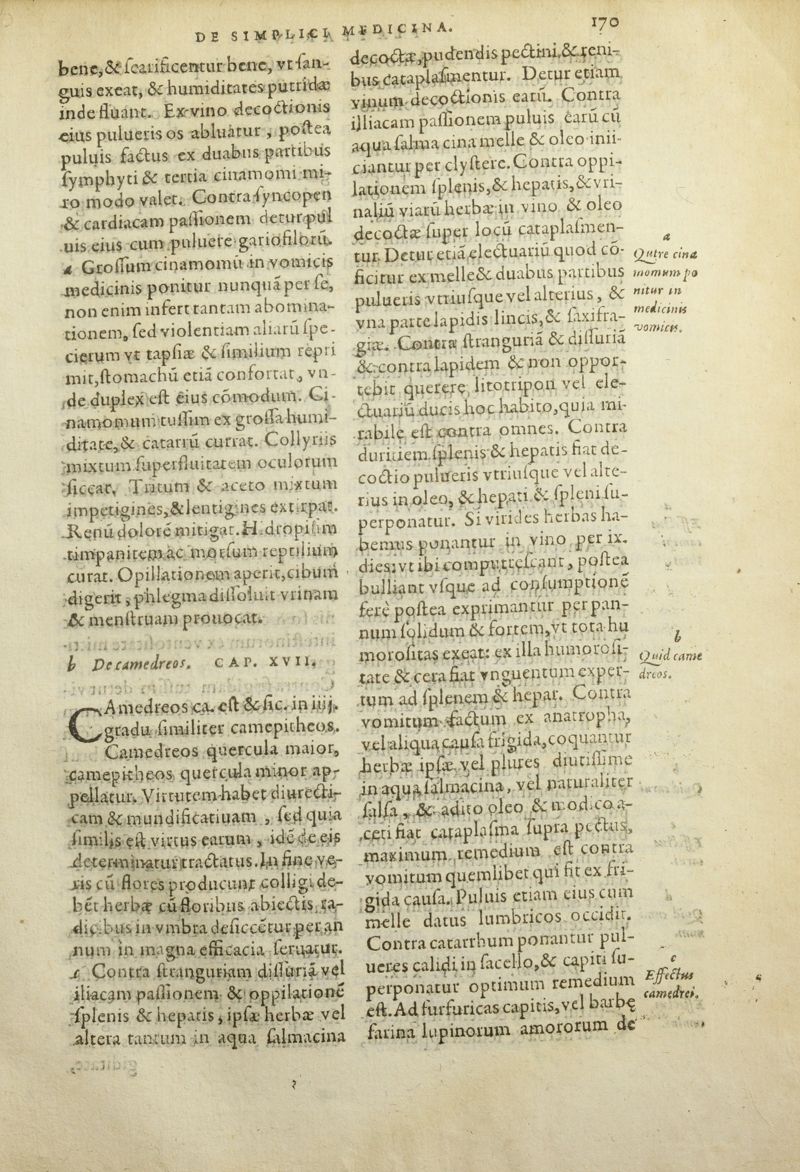 DE SIMPLICI MEDICINA. 170
bene,& ſcarificentur bene, vt ſan-
guis exeat, & humiditates putridæ
inde fluant. Ex vino decoctionis
eius pulueris os abluatur, poſtea
puluis factus ex duabus partibus
ſymphyti & tertia cinamomi mi-
ro modo valet. Contra ſyncopen
& cardiacam paſſionem detur pul
uis eius cum puluere gariofilorū.
a Groſſum cinamomū in vomicis
medicinis ponitur nunquā per ſe,
non enim infert tantam abomina-
tionem, ſed violentiam aliarū ſpe-
cierum vt tapſiæ & ſimilium repri
mit, ſtomachū etiā confortat, vn-
de duplex eſt eius cōmodum. Ci-
namomum tuſſim ex groſſa humi-
ditate,& catarrū curat. Collyriis
mixtum ſuperfluitatem oculorum
ſiccat, Tritum & aceto mixtum
impetigines,& lentigines extirpat.
Renū dolorē mitigat. Hidropiſim
timpanitem ac morſum reptilium
curat. Opillationem aperit, cibum
digerit, phlegma diſſoluit vrinam
& menſtruam prouocat.
b De camedreos. CAP. XVII.
CAmedreos ca. eſt & ſic. in iiij.
gradu ſimiliter camepitheos.
Camedreos quercula maior,
camepitheos quercula minor ap-
pellatur. Virtutem habet diurecti-
cam & mundificatiuam, ſed quia
ſimilis eſt virtus earum, idē de eis
determinatur tractatus. In fine ve-
ris cū flores producunt colligi de-
bēt herbæ cū floribus abiectis ra-
dicibus in vmbra deſiccētur per an
num in magna efficacia ſeruatur.
c Contra ſtranguriam diſſuriā vel
iliacam paſſionem & oppilationē
ſplenis & hepatis, ipſæ herbæ vel
altera tantum in aqua ſalmacina
decoctæ, pudendis pectini,& reni-
bus cataplaſmentur. Detur etiam
vinum decoctionis earū. Contra
illiacam paſſionem puluis earū cū
aqua ſalmacina melle & oleo inii-
ciantur per clyſtere. Contra oppi-
lationem ſplenis,& hepatis,& vri-
naliū viarū herbæ in vino & oleo
decoctæ ſuper locū cataplaſmen-
tur. Detur etiā electuariū quod cō-
ficitur ex melle & duabus partibus
pulueris vtriuſque vel alterius, &
vna parte lapidis lincis,& ſaxifra-
giæ. Contra ſtranguriā & diſſuriā
& contra lapidem & non oppor-
tebit querere litotripon vel ele-
ctuariū ducis hoc habito, quia mi-
rabile eſt contra omnes. Contra
duritiem ſplenis & hepatis fiat de-
coctio pulueris vtriuſque vel alte-
rius in oleo, & hepati & ſpleni ſu-
perponatur. Si virides herbas ha-
bemus ponantur in vino per ix.
dies: vt ibi computreſcant, poſtea
bulliant vſque ad conſumptionē
ferè poſtea exprimantur per pan-
num ſolidum & fortem, vt tota hu
moroſitas exeat: ex illa humoroſi-
tate & cera fiat vnguentum exper-
tum ad ſplenem & hepar. Contra
vomitum factum ex anatropha,
vel aliqua cauſa frigida, coquantur
herbæ ipſæ vel plures diutiſſime
in aqua ſalmacina, vel naturaliter
ſalſa, & adito oleo & modico a-
ceti fiat cataplaſma ſupra pectus,
maximum remedium eſt contra
vomitum quemlibet qui fit ex fri-
gida cauſa. Puluis etiam eius cum
melle datus lumbricos occidit.
Contra catarrhum ponantur pul-
ueres calidi in ſacello,& capiti ſu-
perponatur optimum remedium
eſt. Ad furfuricas capitis, vel barbę
farina lupinorum amororum de
a
Quare cina
momum po
nitur in
medicinis
vomicis.
b
Quid came
dreos.
c
Effectus
camedrei.